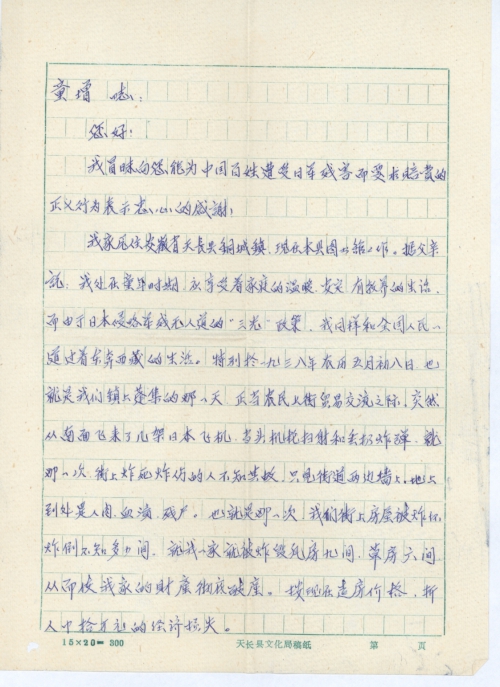 童增 志:
您好:
我冒昧向您能为中国百姓遭受日军残害而要求赔赏的
正义行为表示忠心的感谢!
我家居住安徽省天长县铜城镇,现在本县图书馆工作。据父亲
说:我处在童年时期,永享受着家庭的温暖、安定、有教养的生活,
而由于日本侵略军灭无人道的"三光"政策,我同样和全国人民一
道过着东奔西藏的生活。特别于一九三八年农历五月初八日,也
就是我们镇上逢集的那一天,正当农民上街贸易交流之际,突然
从南面飞来了几架日本飞机,当头机枪扫射和丢扔炸弹,就
那一次,街上炸死炸伤的人不知其数,只见街道两边墙上、地上
到处是人肉、血渍、残尸。也就是那一次,我们街上房屋被炸坏
炸倒不知多少间,就我一家就被炸毁瓦房九间,草房六间,
从而使我家的财产彻底破产。按现在造房价格,折
人民币拾万元的经济损失。
15×20=300 天长县文化局稿纸 第 页